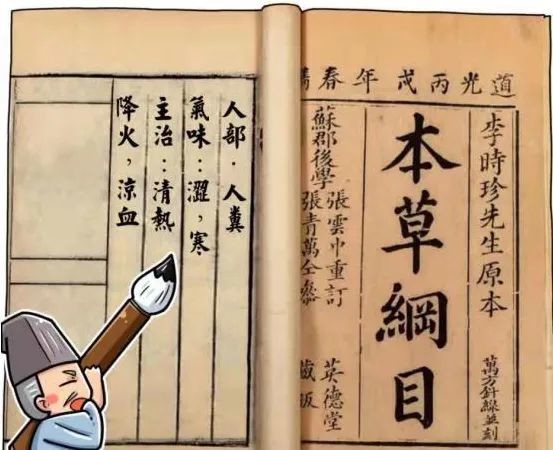 道光丙戌年春
李時珍先生原本
萬方針線並刻
本草綱目
蘇郡後學
張雲中重訂
張青萬仝參
英德堂
藏板
人部·人糞
氣味：澀，寒
主治：清熱
降火，涼血